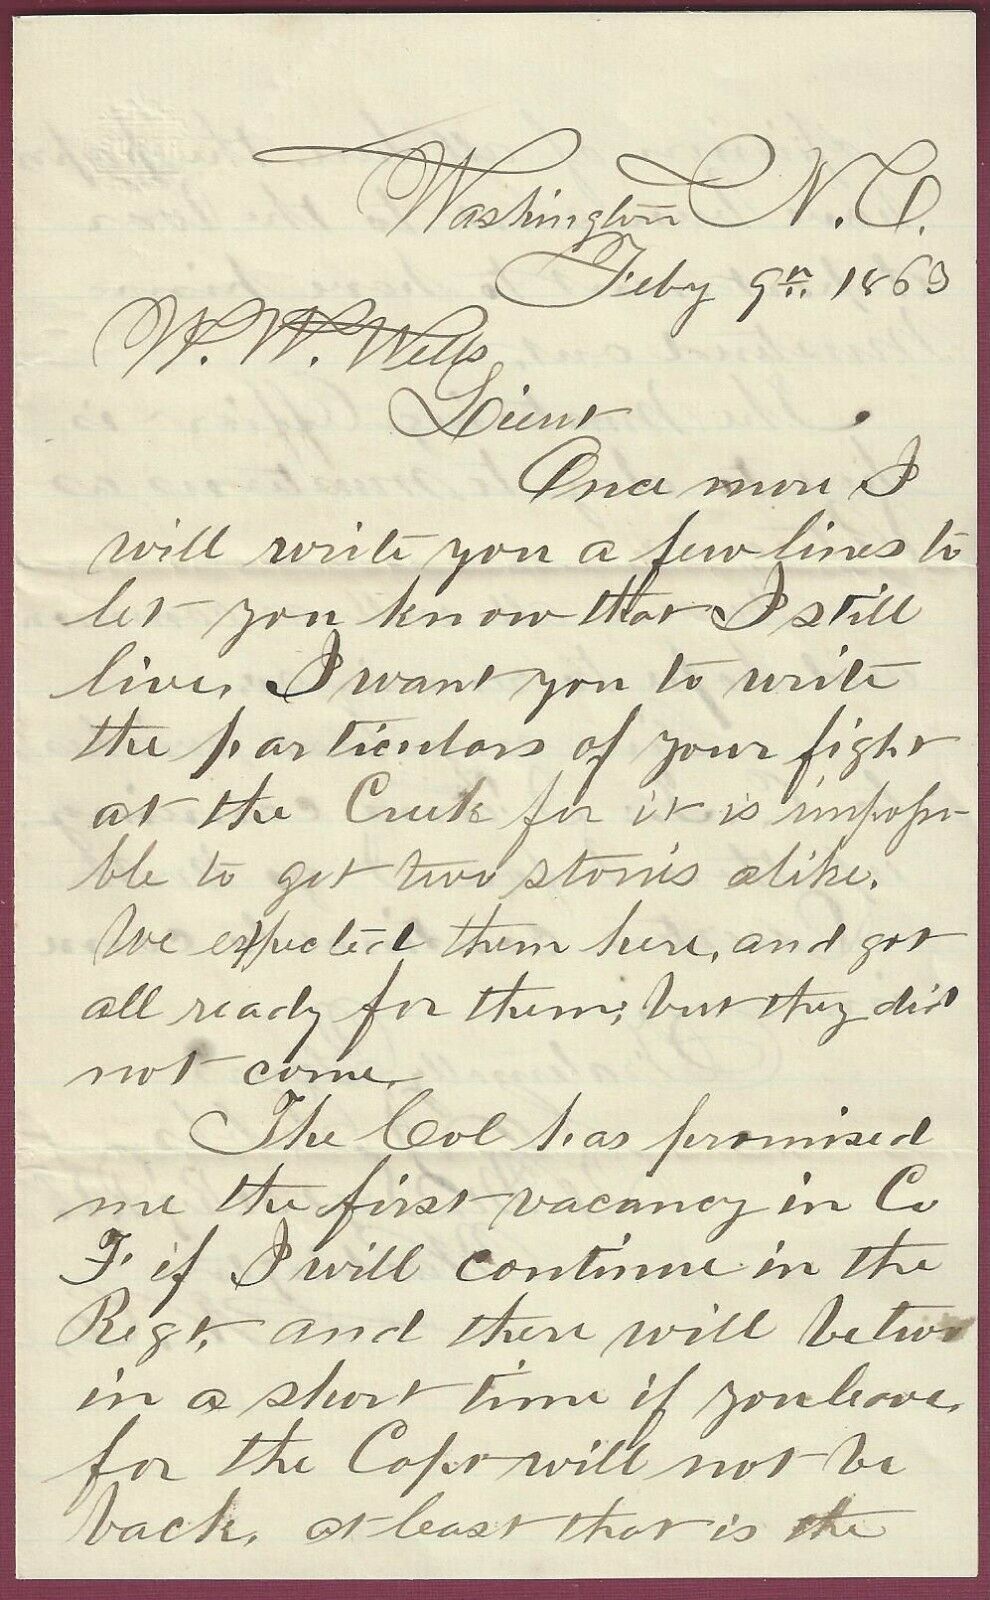 Washington N. C.
Feby 9th. 1863
W. W. Wells
Lieut
Once more I
will write you a few lines to
let you know that I still
live. I want you to write
the particulars of your fight
at the Creek for it is impossi-
ble to get two stories alike.
We expected them here, and got
all ready for them; but they did
not come.
The Col has promised
me the first vacancy in Co
F. if I will continue in the
Regt, and there will be two
in a short time if you leave,
for the Capt will not be
back. at least that is the